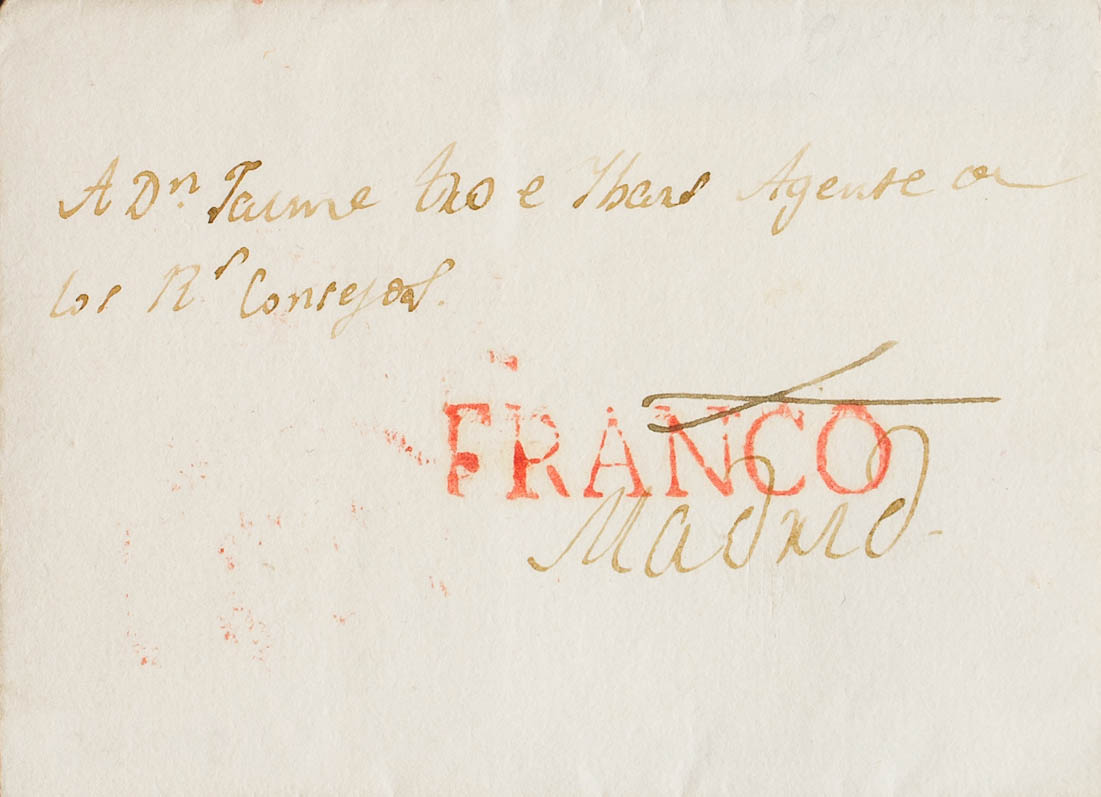 A Dn Jaime tro e Ybars Agente en
los Rs Consejos.
FRANCO
Madrid.